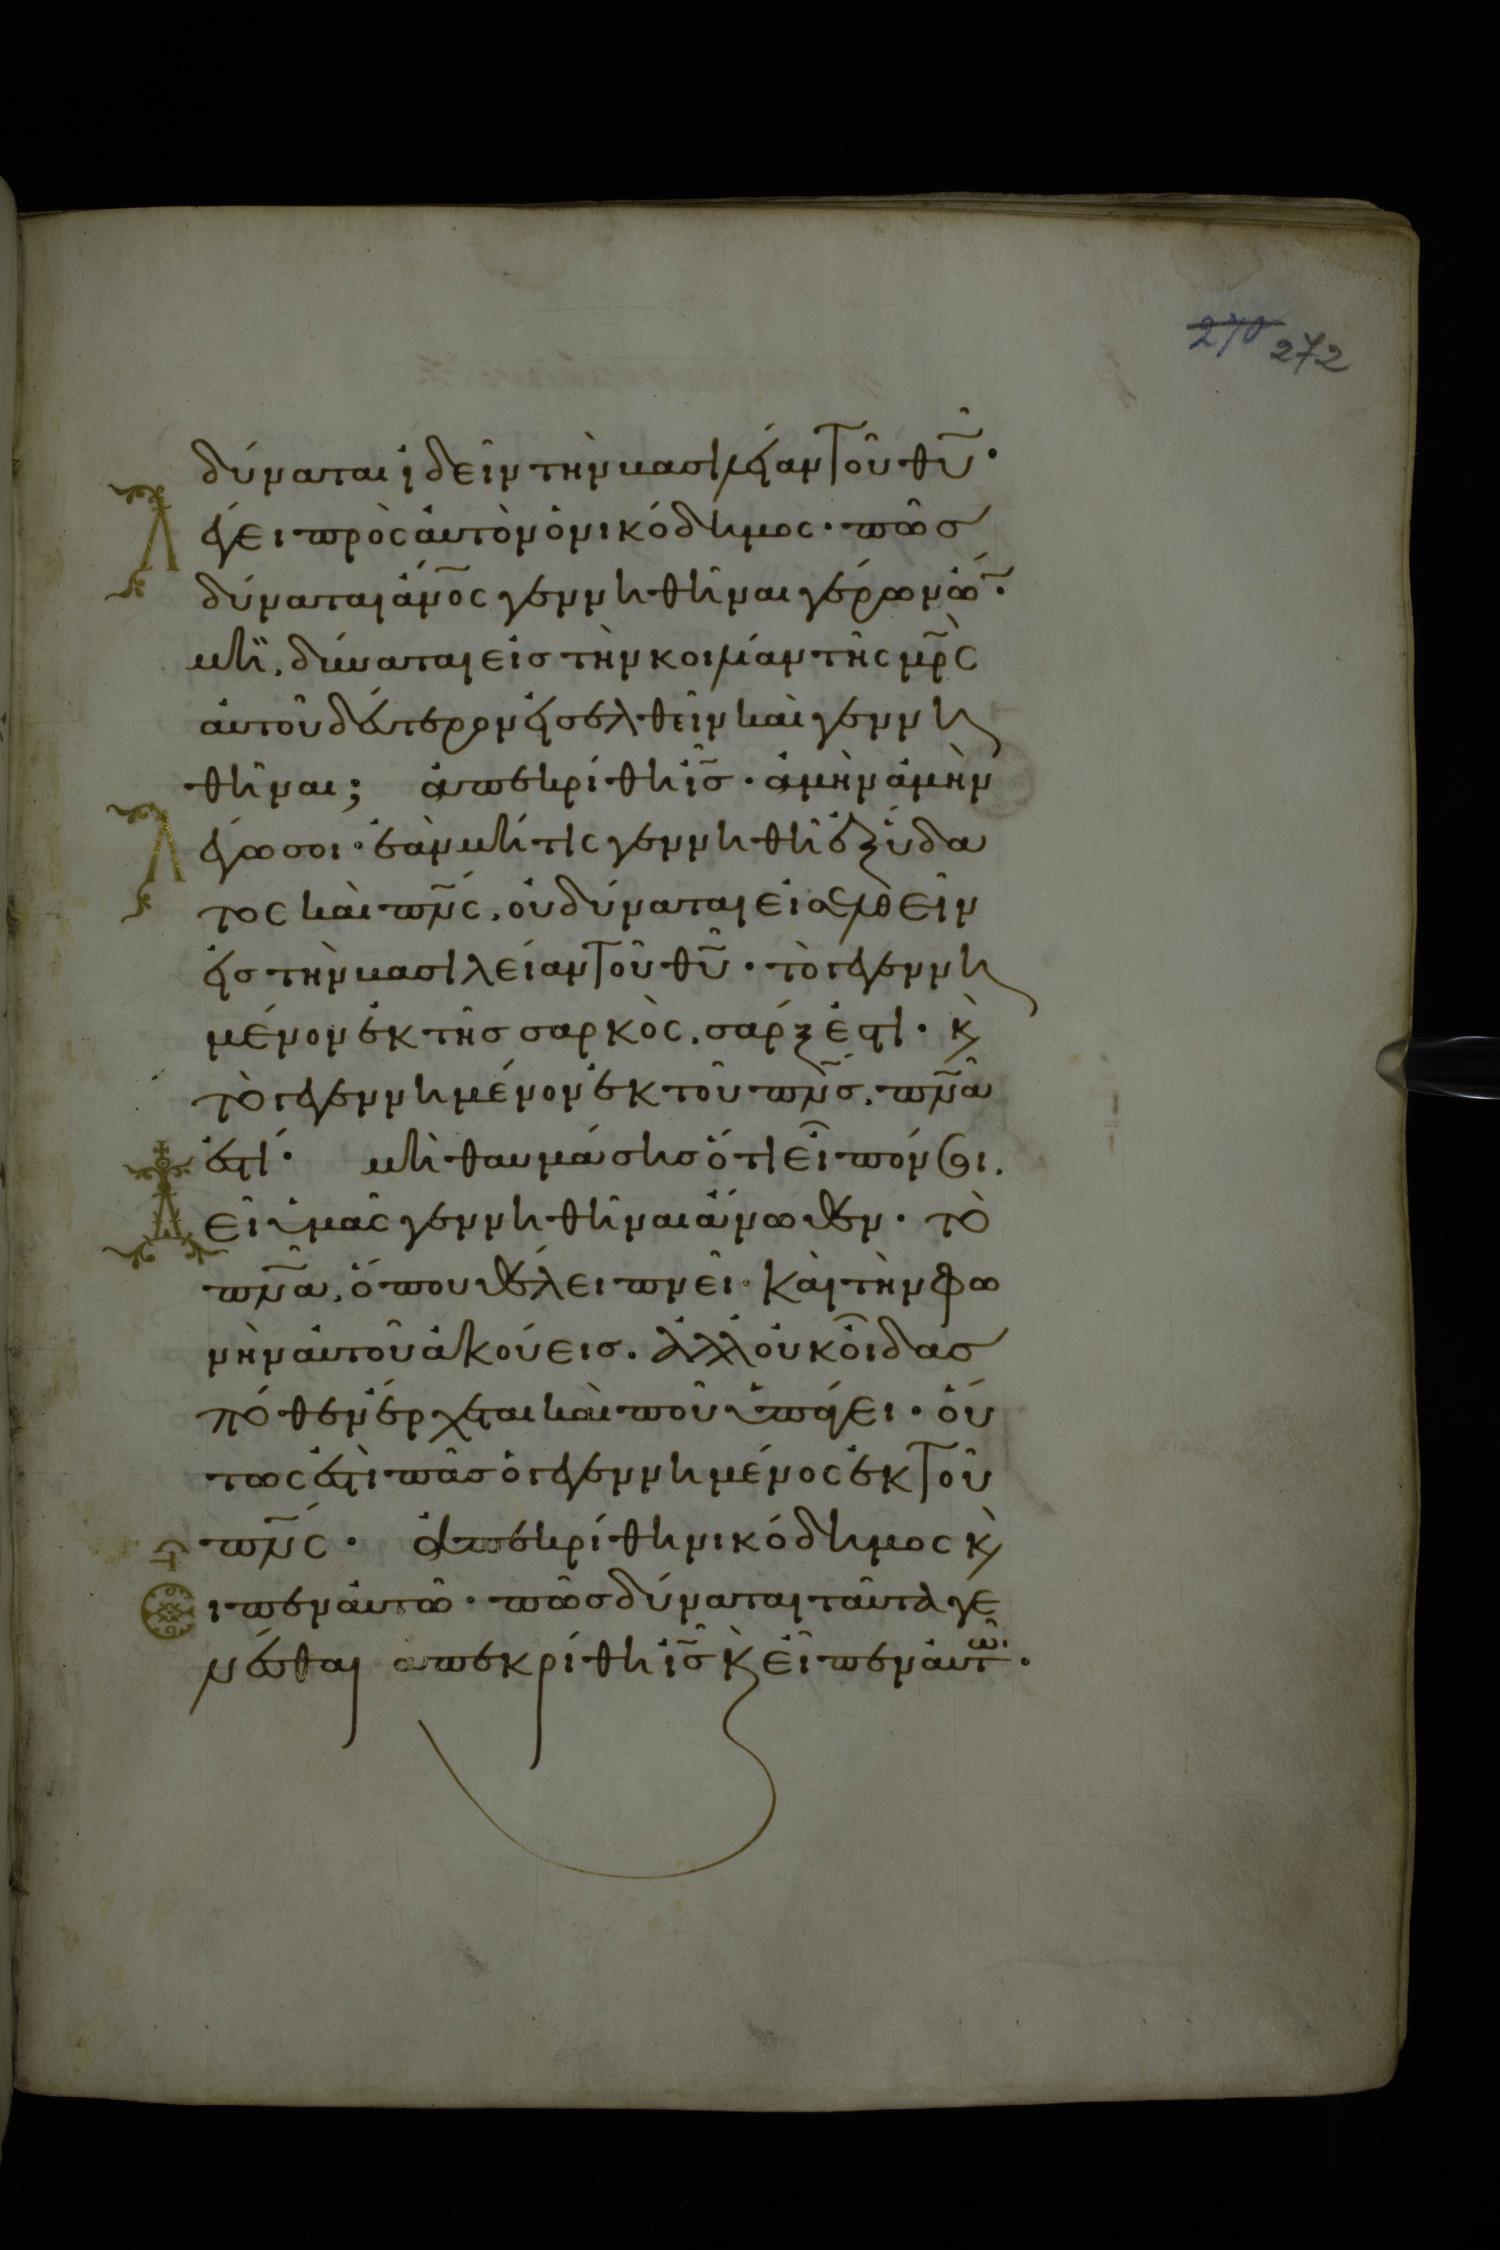 270 272
δύναται ἰδεῖν τὴν βασιλείαν τοῦ θ̅υ̅·
Λέγει πρὸς αὐτὸν ὁ νικόδημος· πῶσ
δύναται ἄν̅ο̅ς γεννηθῆναι γέρων ὤ̅·
μὴ, δύναται εἰσ τὴν κοιλίαν τῆς μ̅ρ̅ς
αὐτοῦ δεύτερον εἰσελθεῖν καὶ γεννη
θῆναι; ἀπεκρίθη ι̅σ̅· ἀμὴν ἀμὴν
Λέγω σοι· ἐὰν μή τις γεννηθῆ ἐξ ὕδα
τος καὶ π̅ν̅ς, οὐ δύναται εἰσελθεῖν
εἰσ τὴν βασιλείαν τοῦ θ̅υ̅· τὸ γεγεννη
μένον ἐκ τῆσ σαρκὸς, σάρξ ἐστι· κ̀
τὸ γεγεννημένον ἐκ τοῦ π̅ν̅σ, π̅ν̅α
ἐστί· μὴ θαυμάσησ ὅτι εἶπόν σοι.
Δεῖ ὑμᾶς γεννηθῆναι ἄνωθεν· τὸ
π̅ν̅α, ὅπου θέλει πνεῖ· καὶ τὴν φω
νὴν αὐτοῦ ἀκούεισ. ἀλλ οὐκ οἶδασ
πόθεν ἔρχεται καὶ ποῦ ὑπάγει· οὕ
τως ἐστὶ πᾶσ ὁ γεγεννημένος ἐκ τοῦ
π̅ν̅ς· ἀπεκρίθη νικόδημος κ̀
εἶπεν αὐτῶ· πῶσ δύναται ταῦτα γε
νέσθαι ἀπεκρίθη ι̅σ̅ κ̀ εἶπεν αὐτῶ·